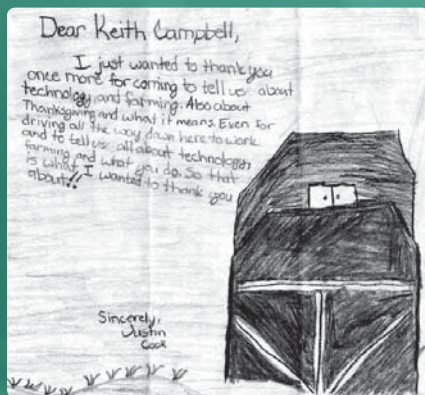 Dear Keith Campbell,
I just wanted to thank you
once more for coming to tell us about
technology and farming. Also about
Thanksgiving and what it means. Even for
driving all the way down here to work
and to tell us all about technology,
farming and what you do. So that
is what I wanted to thank you
about!!
Sincerely,
Justin
Cook